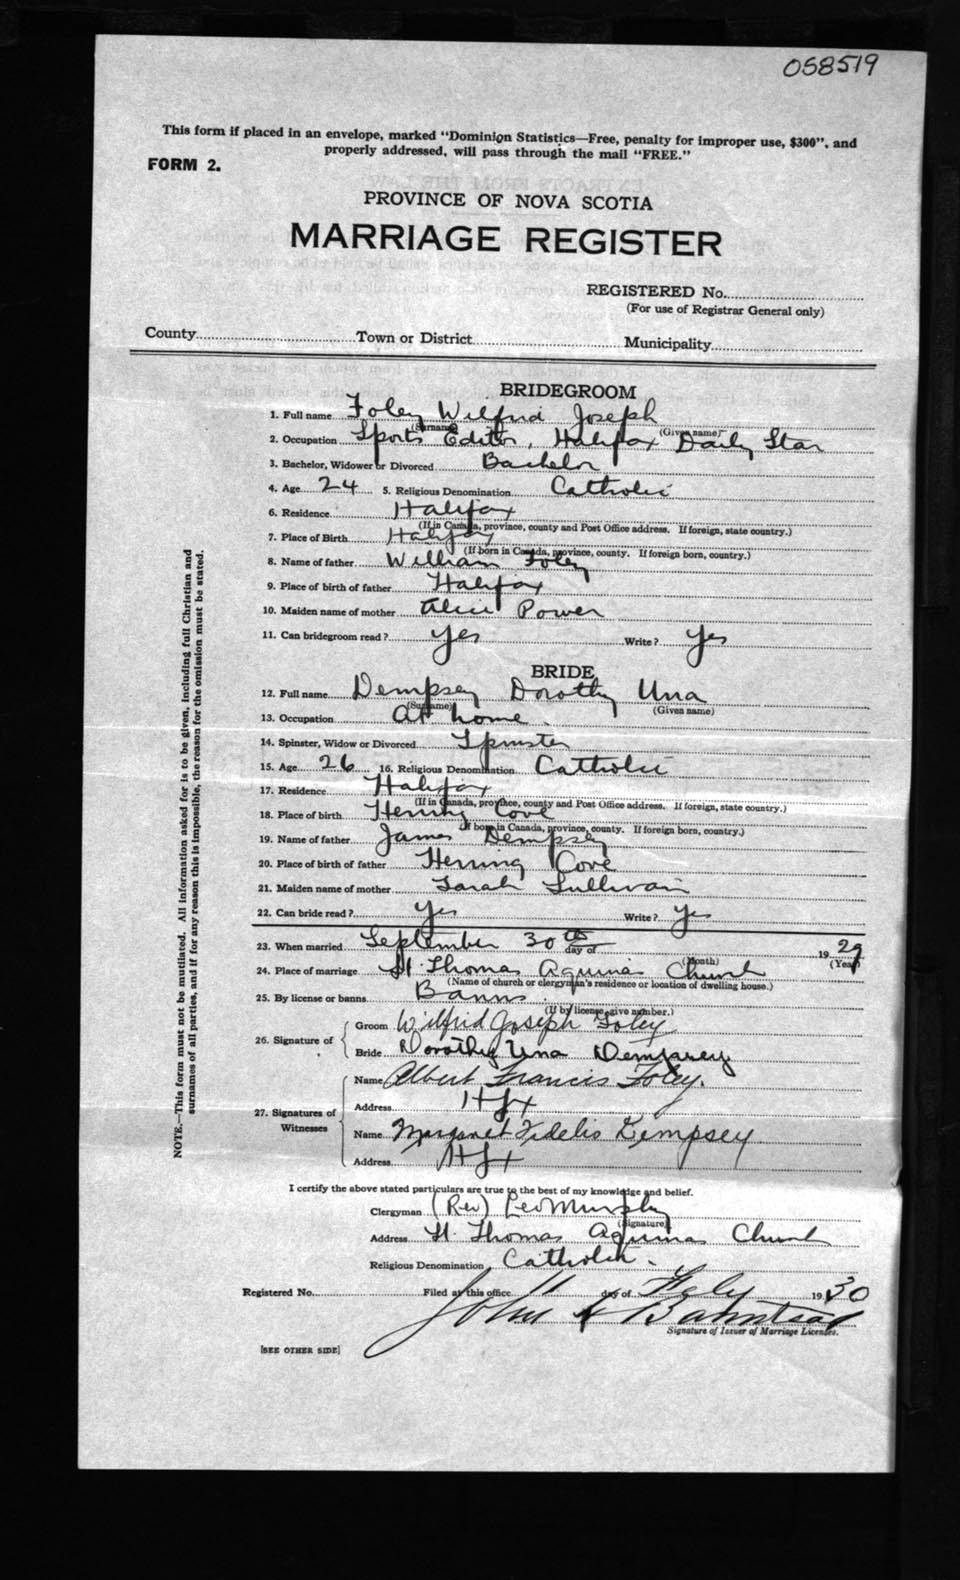 058519
This form if placed in an envelope, marked "Dominion Statistics—Free, penalty for improper use, $300", and
properly addressed, will pass through the mail "FREE."
FORM 2.
PROVINCE OF NOVA SCOTIA
MARRIAGE REGISTER
REGISTERED No.
(For use of Registrar General only)
County Town or District Municipality
BRIDEGROOM
1. Full name Foley Wilfrid Joseph
(Surname) (Given name)
2. Occupation Sports Editor, Halifax Daily Star
3. Bachelor, Widower or Divorced Bachelor
4. Age 24 5. Religious Denomination Catholic
6. Residence Halifax
(If in Canada, province, county and Post Office address. If foreign, state country.)
7. Place of Birth Halifax
(If born in Canada, province, county. If foreign born, country.)
8. Name of father William Foley
9. Place of birth of father Halifax
10. Maiden name of mother Alice Power
11. Can bridegroom read? Yes Write? Yes
BRIDE
12. Full name Dempsey Dorothy Una
(Surname) (Given name)
13. Occupation At home.
14. Spinster, Widow or Divorced Spinster
15. Age 26 16. Religious Denomination Catholic
17. Residence Halifax
(If in Canada, province, county and Post Office address. If foreign, state country.)
18. Place of birth Herring Cove
(If born in Canada, province, county. If foreign born, country.)
19. Name of father James Dempsey
20. Place of birth of father Herring Cove
21. Maiden name of mother Sarah Sullivan
22. Can bride read? Yes Write? Yes
23. When married September 30th day of 1929
(Month) (Year)
24. Place of marriage St. Thomas Aquinas Church
(Name of church or clergyman's residence or location of dwelling house.)
25. By license or banns Banns.
(If by license, give number.)
26. Signature of Groom Wilfrid Joseph Foley
Bride Dorothy Una Dempsey
27. Signatures of Witnesses Name Albert Francis Foley.
Address Hfx
Name Margaret Fidelis Dempsey
Address Hfx
I certify the above stated particulars are true to the best of my knowledge and belief.
Clergyman (Rev) Leo Murphy
(Signature)
Address St. Thomas Aquinas Church
Religious Denomination Catholic.
Registered No. Filed at this office day of 1930
John
Signature of Issuer of Marriage Licenses.
[SEE OTHER SIDE]
NOTE.—This form must not be mutilated. All information asked for is to be given, including full Christian and
surnames of all parties, and if for any reason this is impossible, the reason for the omission must be stated.